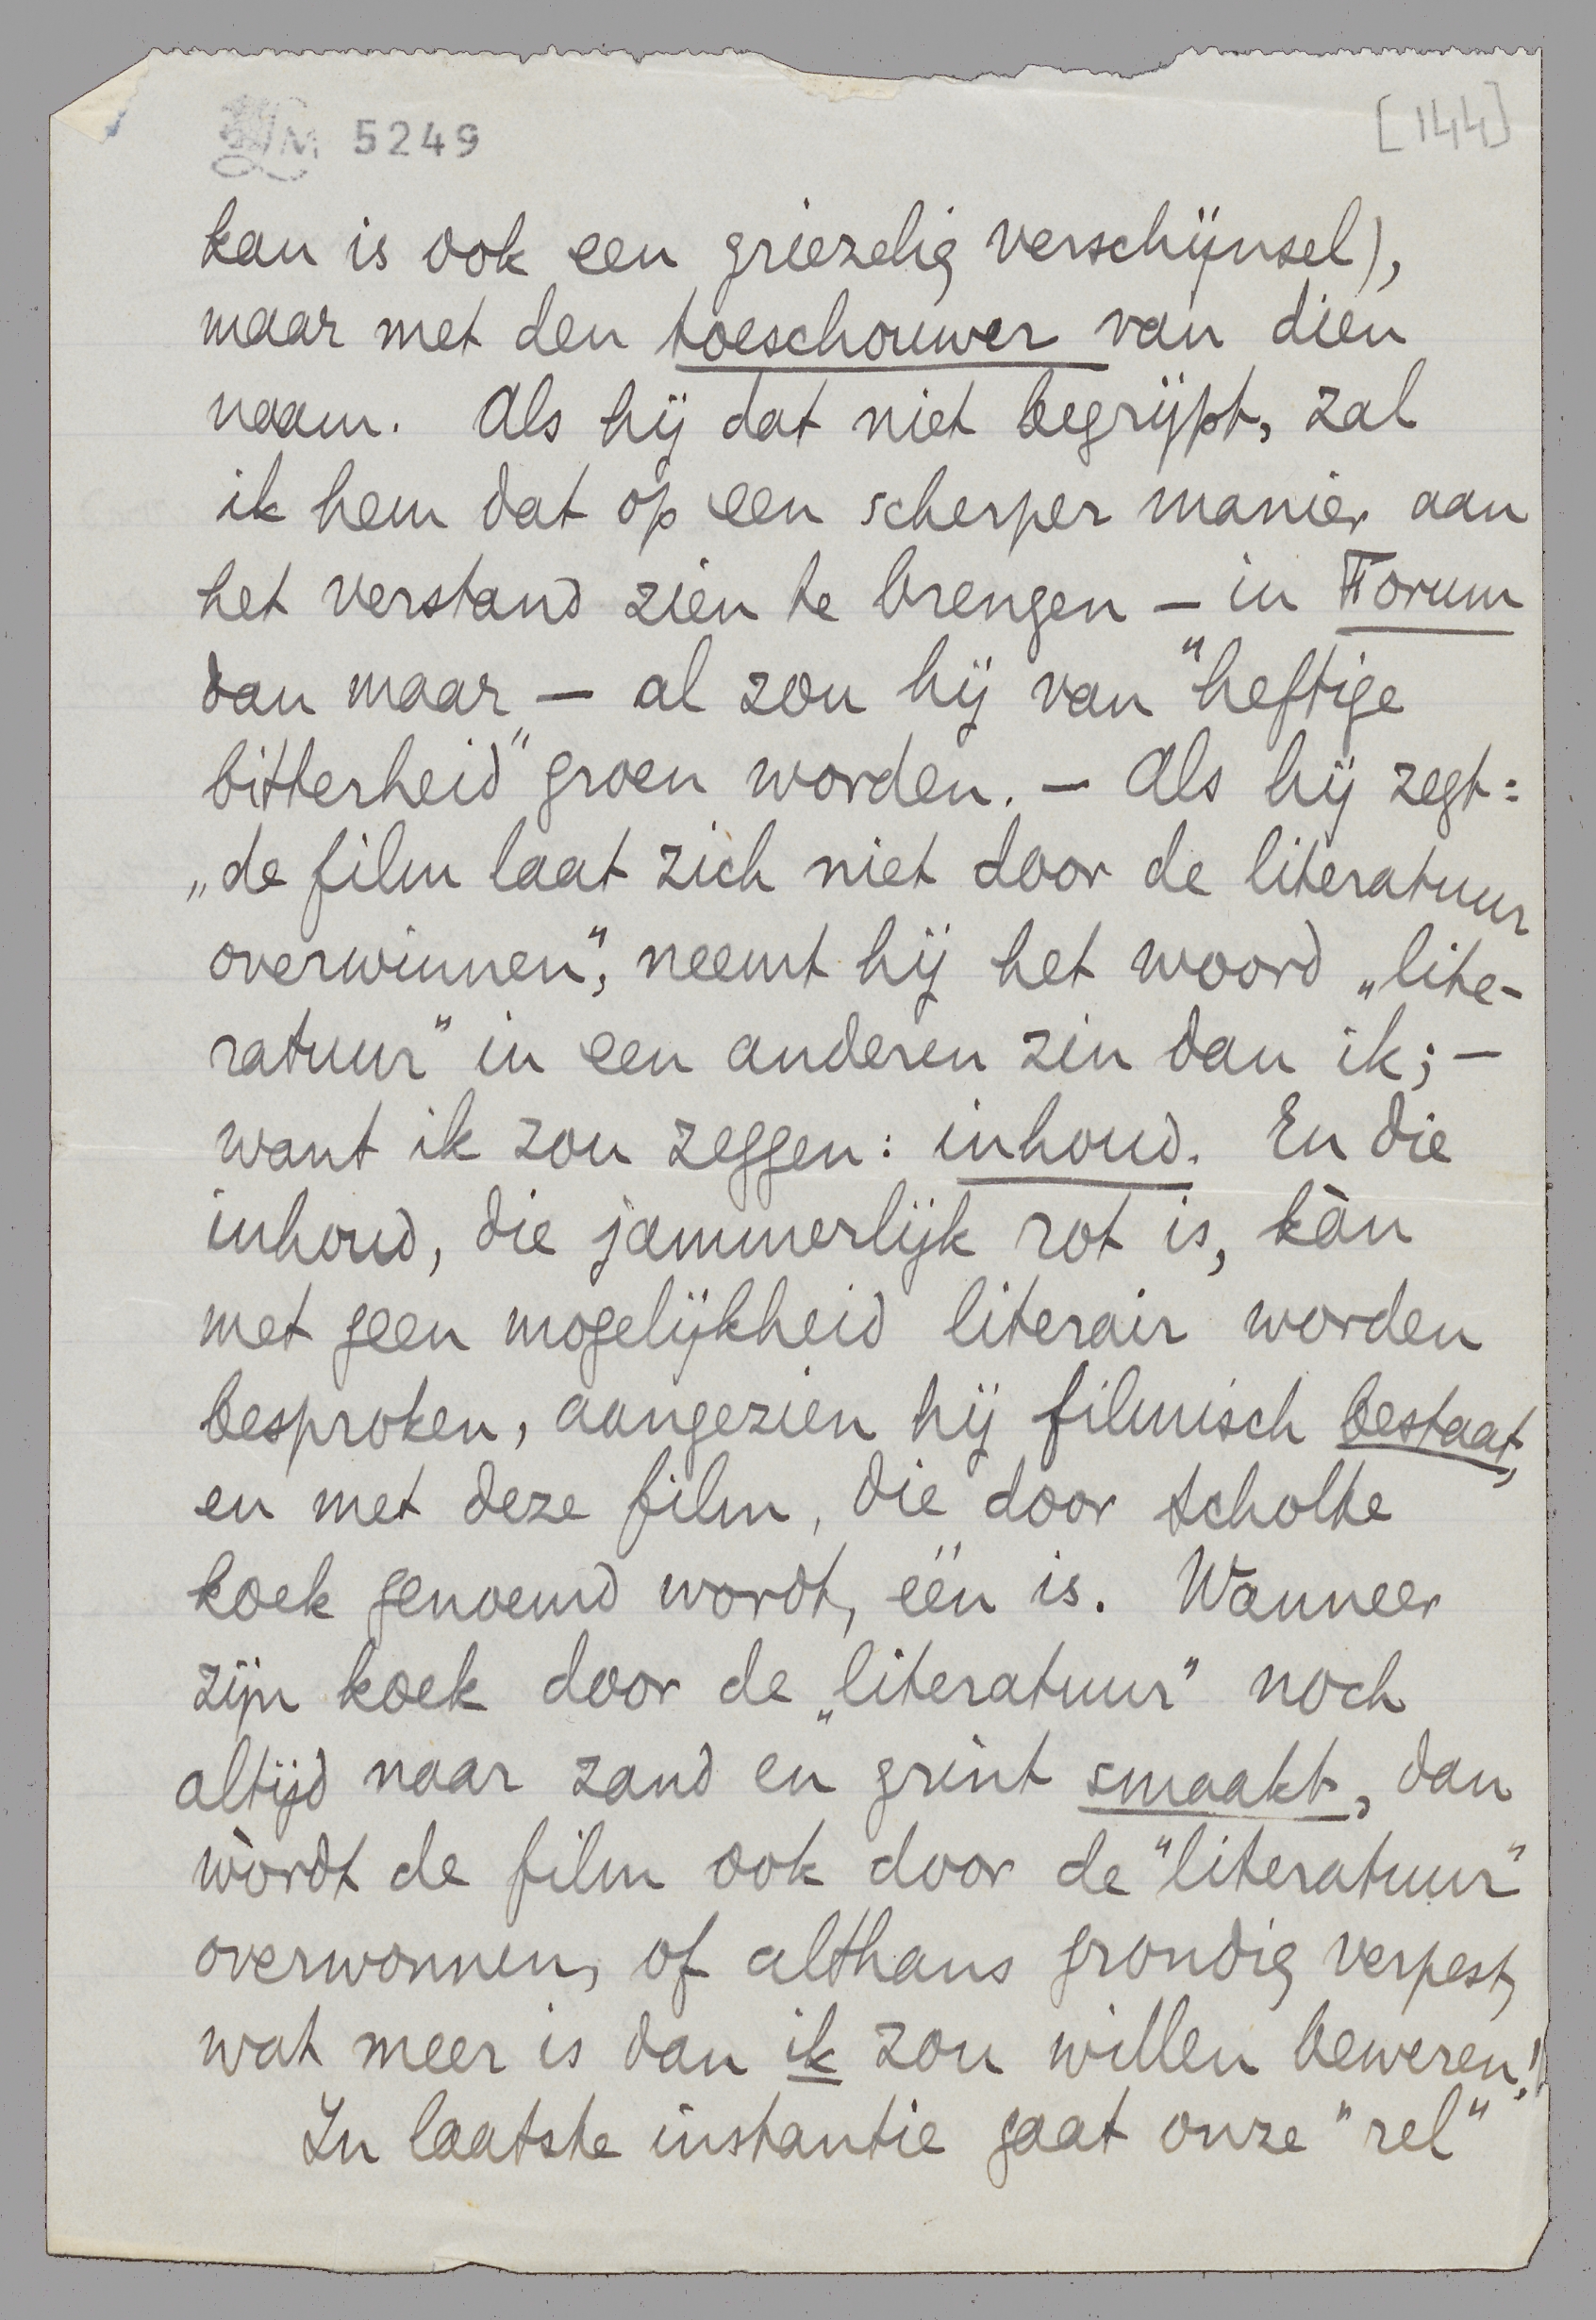 LM 5249
[144]
kan is ook een griezelig verschijnsel),
maar met den toeschouwer van dien
naam. Als hij dat niet begrijpt, zal
ik hem dat op een scherper manier aan
het verstand zien te brengen – in Forum
dan maar – al zou hij van "heftige
bitterheid" groen worden. – Als hij zegt:
„de film laat zich niet door de literatuur
overwinnen", neemt hij het woord „lite-
ratuur" in een anderen zin dan ik; –
want ik zou zeggen: inhoud. En die
inhoud, die jammerlijk rot is, kàn
met geen mogelijkheid literair worden
besproken, aangezien hij filmisch bestaat,
en met deze film, die door Scholte
koek genoemd wordt, één is. Wanneer
zijn koek door de „literatuur" noch
altijd naar zand en grint smaakt, dan
wòrdt de film ook door de "literatuur"
overwonnen, of althans grondig verpest,
wat meer is dan ik zou willen beweren!
In laatste instantie gaat onze "rel"